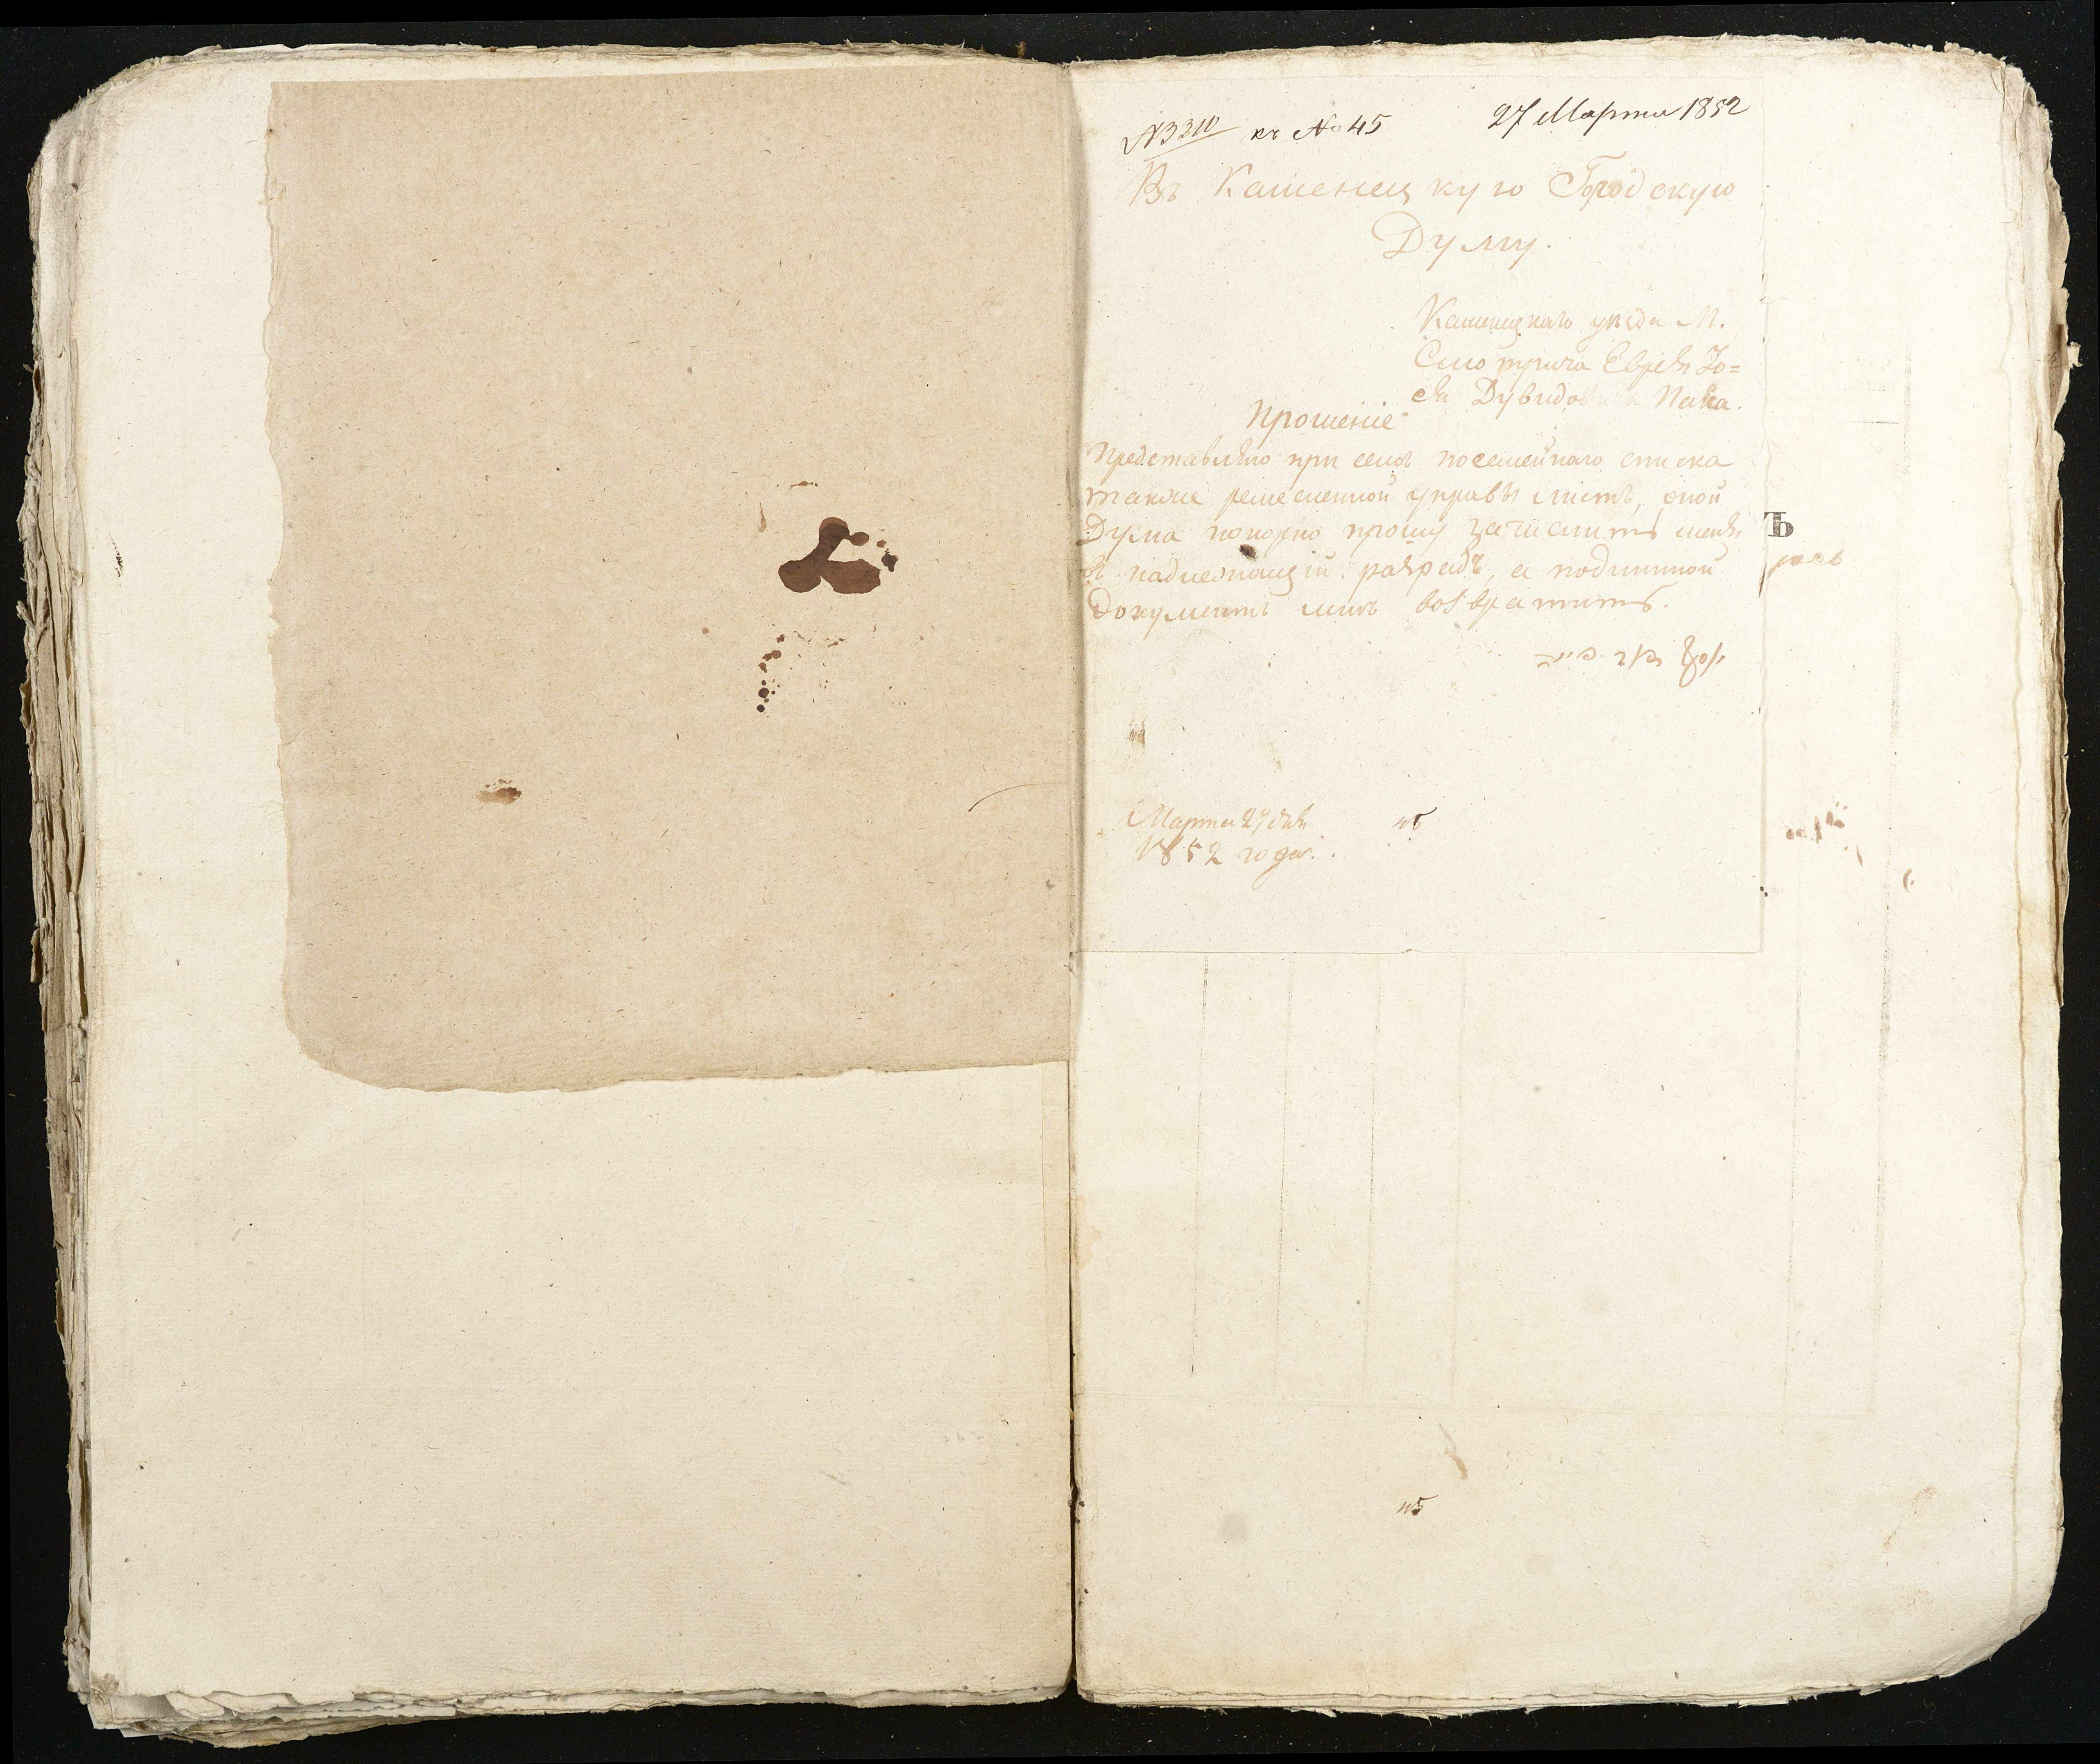 № 3210 къ № 45 27 Марта 1852
Въ Каменецкую Городскую
Думу.
Каменецкаго уѣзда М.
Смотрича Еврея Іо=
ся Дувидовича
Прошеніе
Представляю при семъ посемейнаго списка
также ремесленной управы листъ, оной
Дума покорно прошу зачислить меня
в надлежащій разрядъ, а подлинной
Документъ мнѣ возвратить.
Марта 27 дня
1852 года.
45
ъ
45